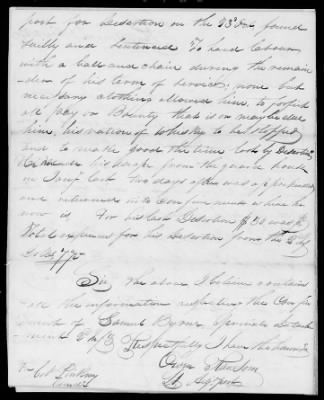 post for Desertion on the 23d found
guilty and Sentenced To hard labour
with a ball and chain during the remain
der of his term of service; none but
necessary clothing allowed him, to forfeit
all pay or Bounty that is or may be due
him, his ration of Whiskey to be stopped
and to make good the time lost by Desertion
made his escape from the guard house
on Jany last two days after was apprehended
and returned into Confinement where he
now is. For his last Desertion $30 was
Total expenses for his Desertion from the
Sir, the above I believe contains
all the information respecting the Confine
ment of Samuel Byrne
Respectfully I have the honour
Owen Ransom
Lt
Col